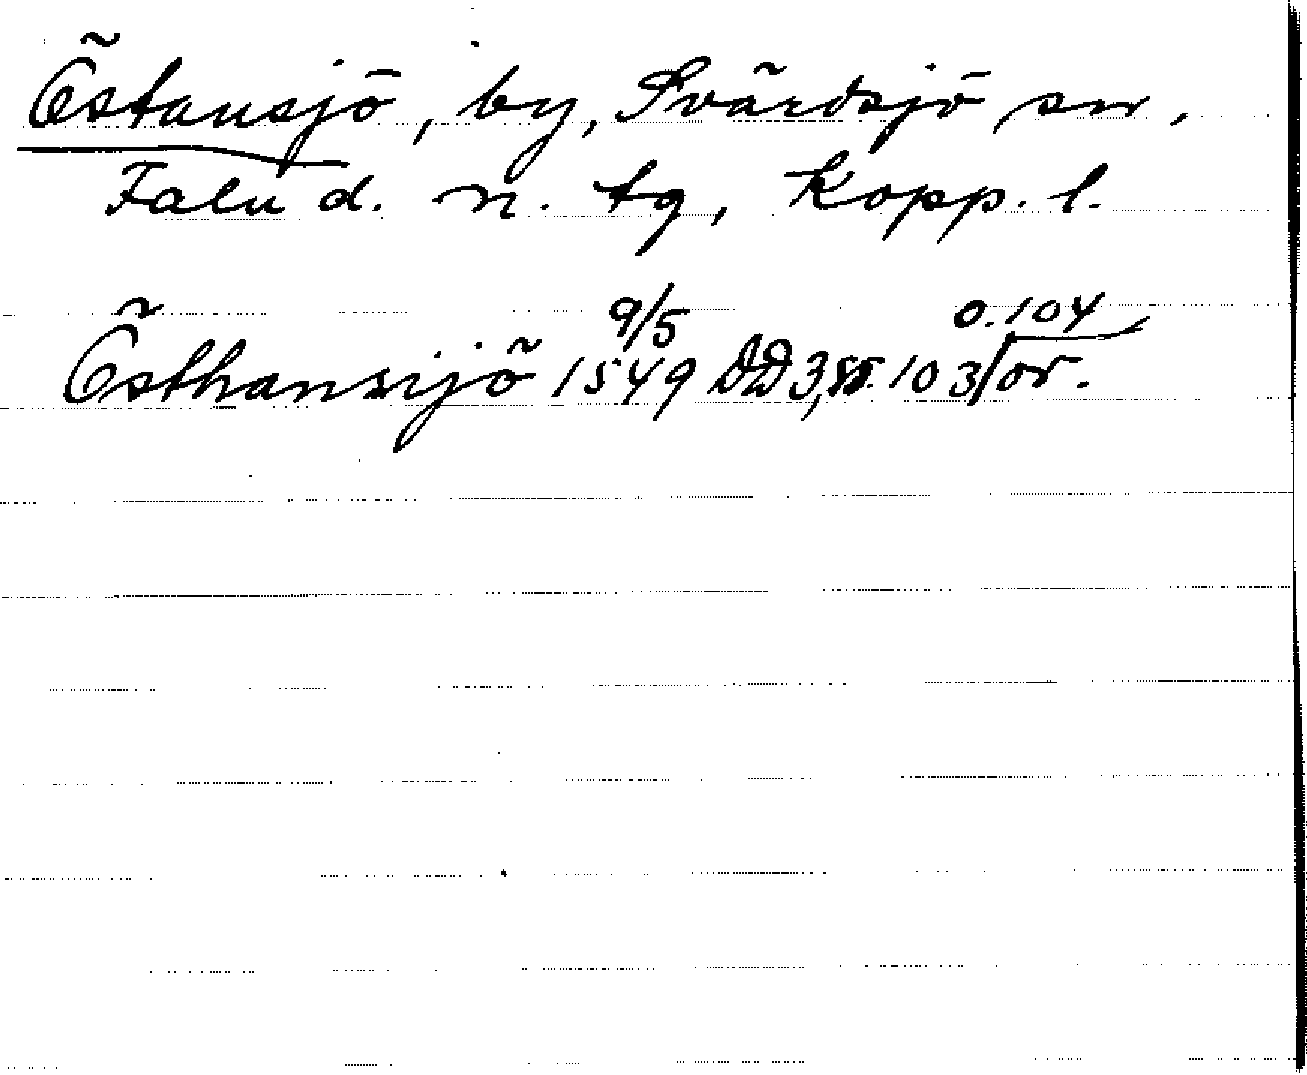 Östansjö, by, Svärdsjö sn,
Falu d. n. tg, Kopp. l.
Östhansijö 9/5 1549 DD 3, 103 o. 104 or.